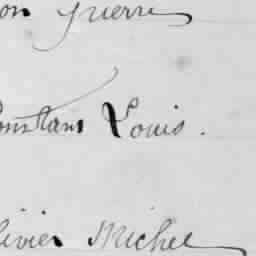 on Pierre
onstans Louis.
livier Michel